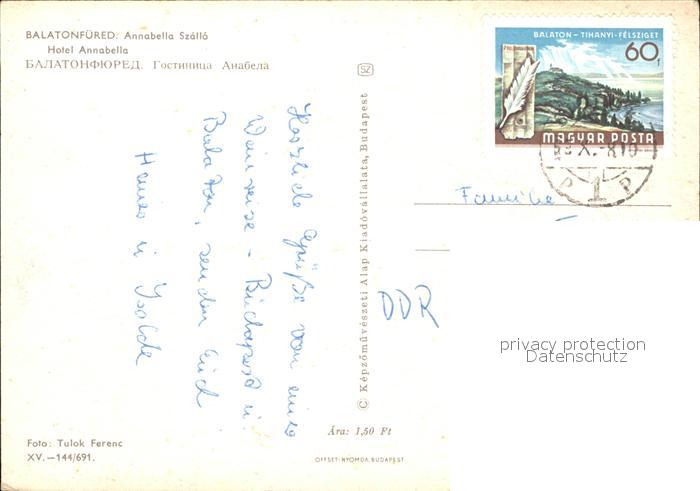 BALATONFÜRED: Annabella Szálló
Hotel Annabella
БАЛАТОНФЮРЕД. Гостиница Анабела
SZ
BALATON - TIHANYI-FÉLSZIGET
60f
MAGYAR POSTA
1
P P
Herzliche Grüße von
Budapest u.
Balaton, senden Euch
Heinz u Isolde
Familie
DDR
privacy protection
Datenschutz
© Képzőművészeti Alap Kiadóvállalata, Budapest
Ára: 1,50 Ft
Foto: Tulok Ferenc
XV.—144/691.
OFFSET-NYOMDA, BUDAPEST